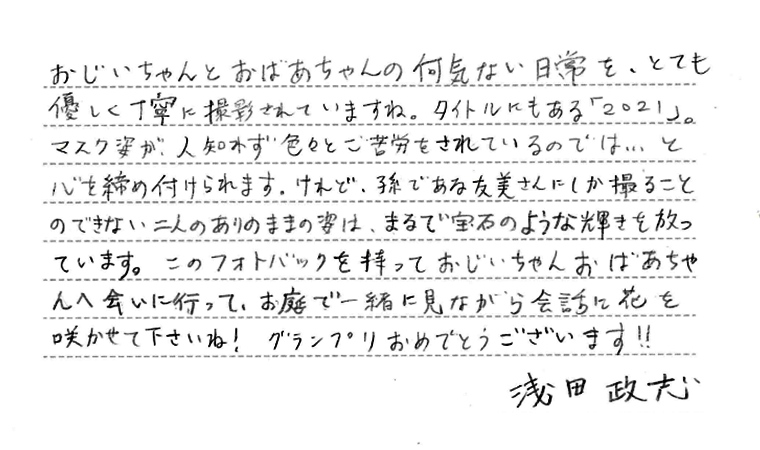 おじいちゃんとおばあちゃんの何気ない日常を、とても
優しく丁寧に撮影されていますね。タイトルにもある「2021」。
マスク姿が、人知れず色々とご苦労をされているのでは…と
心を締め付けられます。けれど、孫である友美さんにしか撮ること
のできない二人のありのままの姿は、まるで宝石のような輝きを放っ
ています。このフォトバックを持っておじいちゃんおばあちゃ
んへ会いに行って、お庭で一緒に見ながら会話に花を
咲かせて下さいね！ グランプリおめでとうございます!!
浅田政志